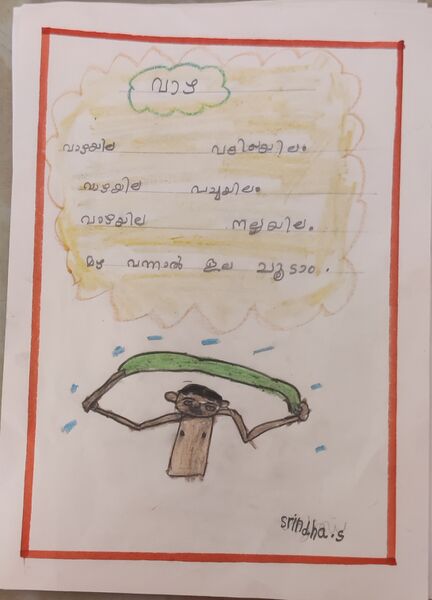 വാഴ
വാഴയില വലിയയിലം
വാഴയില പച്ചയിലം
വാഴയില നല്ലയില.
മഴ വന്നാൽ ഇല ചൂടാം.
srindha.s